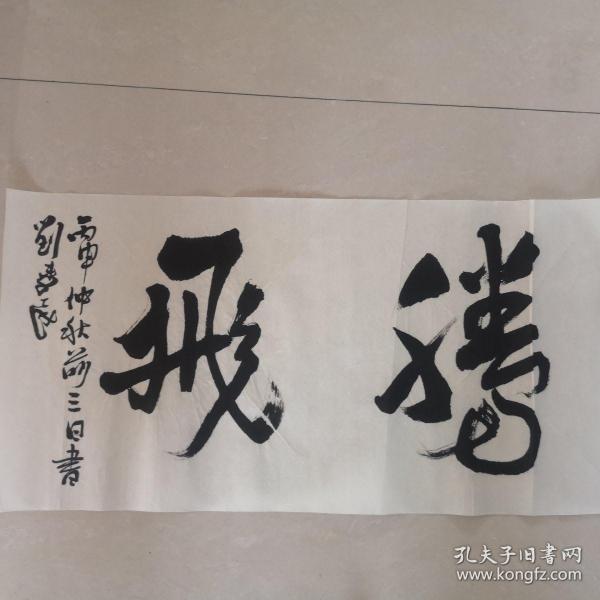 腾飛
丙申仲秋前三日書
劉
孔夫子旧書网
www.kongfz.com